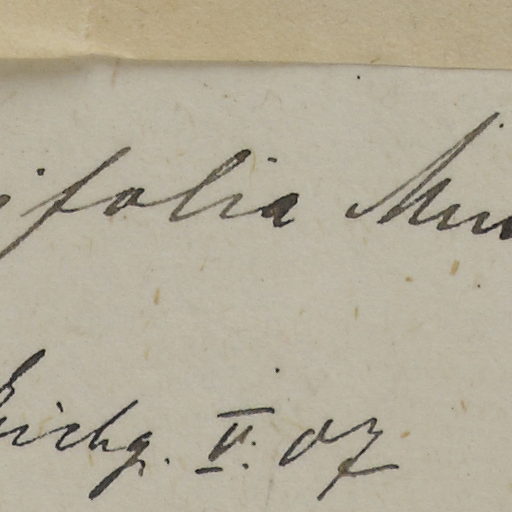 ifolia Mun
Eichg. V. 07